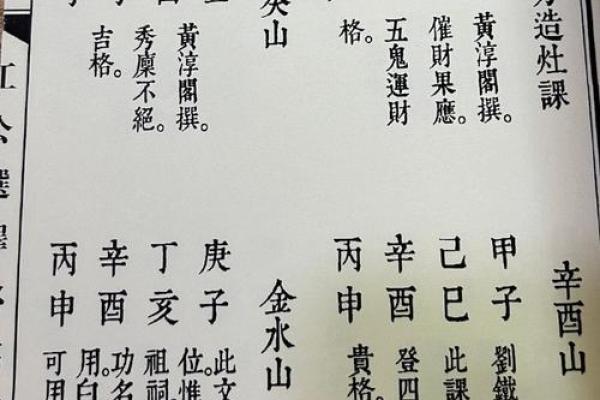 造灶課
黃淳閣撰。
催財果應。
五鬼運財
格。
山
黃淳閣撰。
秀廩不絕。
吉格。
辛酉山
甲子
己巳
辛酉
丙申
劉鐵
此課
登四
貴格。
金水山
庚子
丁亥
辛酉
丙申
此文
位。惟
祖祠。
功名
用。白
可用
公選擇